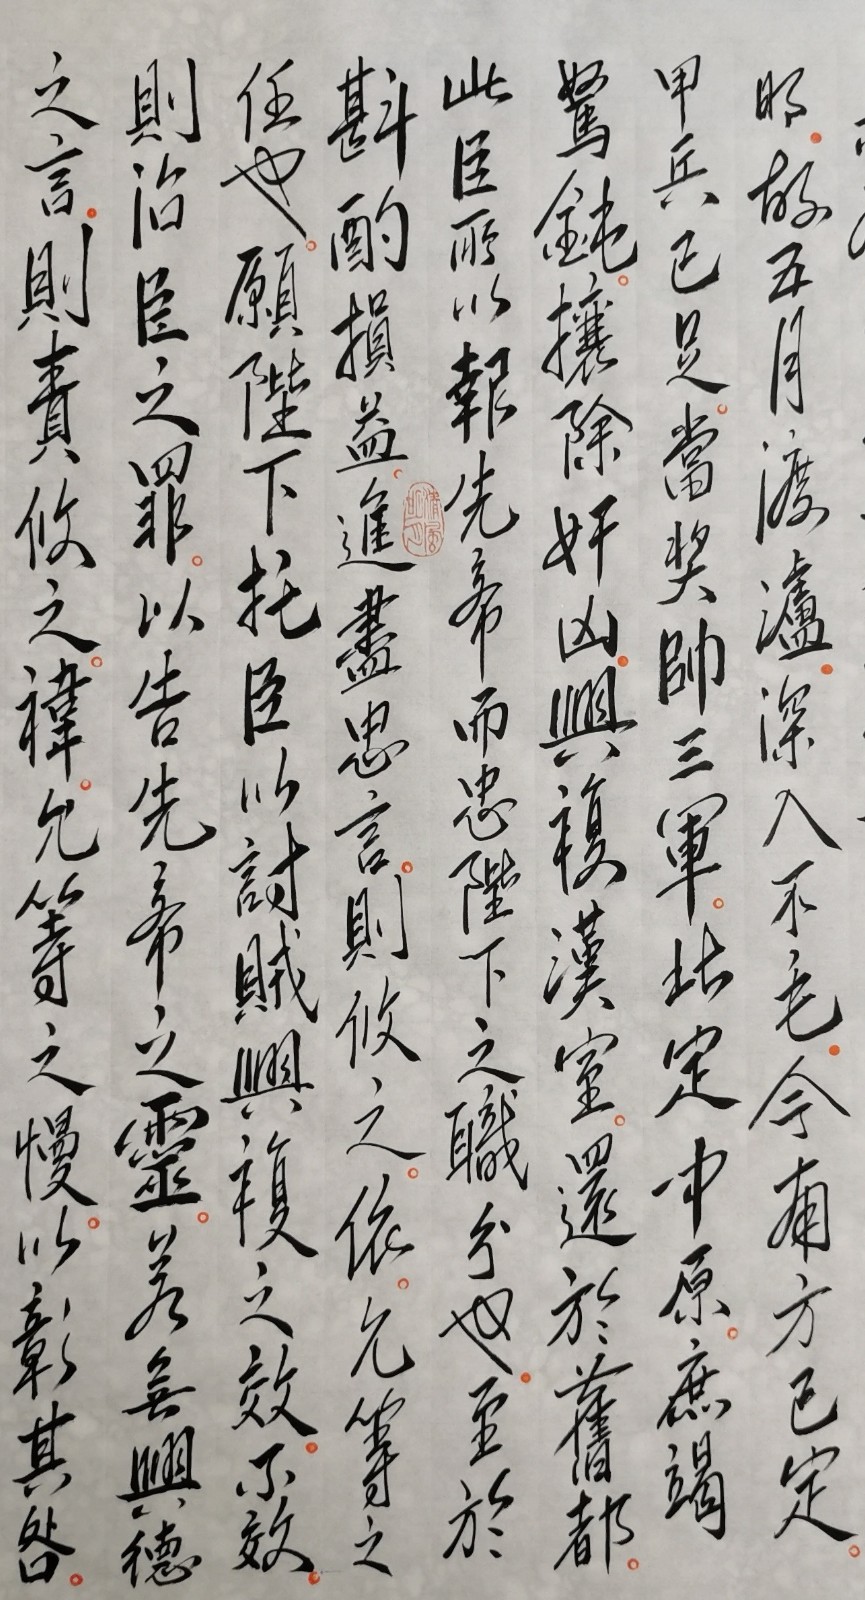 明。故五月渡瀘。深入不毛。今南方已定。
甲兵已足。當奨帥三軍。北定中原。庶竭
駑鈍。攘除奸凶。興複漢室。還於舊都。
此臣所以報先帝而忠陛下之職分也。至於
斟酌損益。進盡忠言。則攸之。依。允等之
任也。願陛下托臣以討賊興複之效。不效。
則治臣之罪。以告先帝之靈。若無興德
之言。則責攸之。禕。允等之慢。以彰其咎。